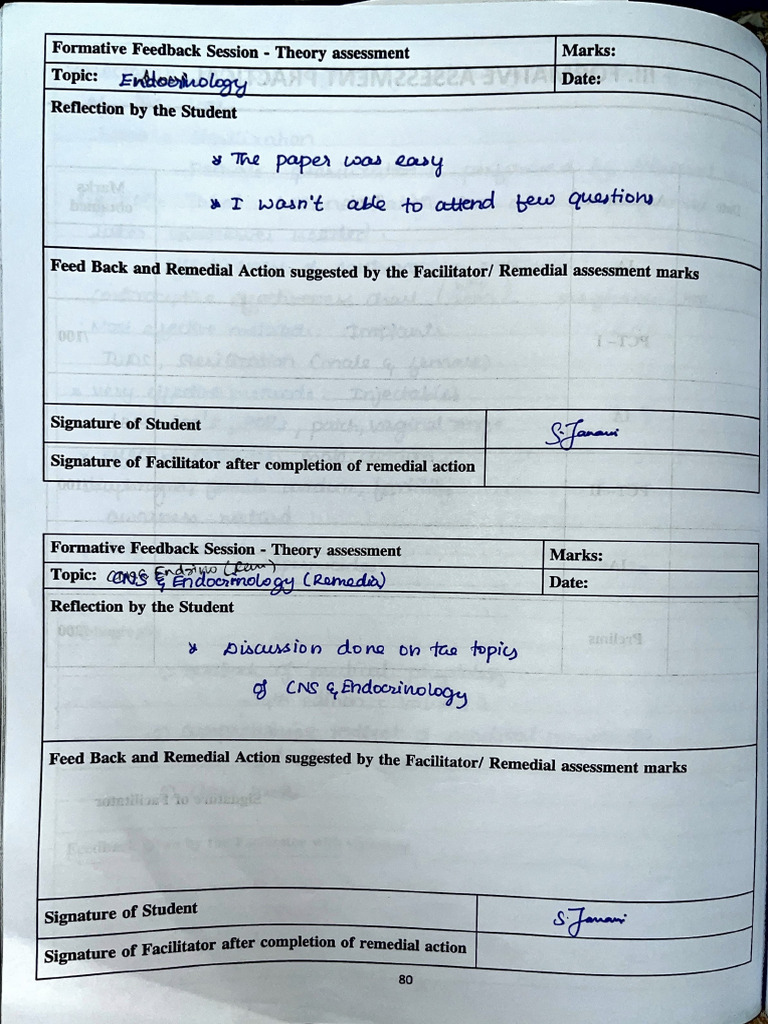 Formative Feedback Session - Theory assessment Marks:
Topic: Endocrinology Date:
Reflection by the Student
* The paper was easy
* I wasn't able to attend few questions
Feed Back and Remedial Action suggested by the Facilitator/ Remedial assessment marks
Signature of Student S. Janani
Signature of Facilitator after completion of remedial action
Formative Feedback Session - Theory assessment Marks:
Topic: CNS & Endocrinology (Remedia) Date:
Reflection by the Student
* Discussion done on the topics
of CNS & Endocrinology
Feed Back and Remedial Action suggested by the Facilitator/ Remedial assessment marks
Signature of Student S. Janani
Signature of Facilitator after completion of remedial action
80